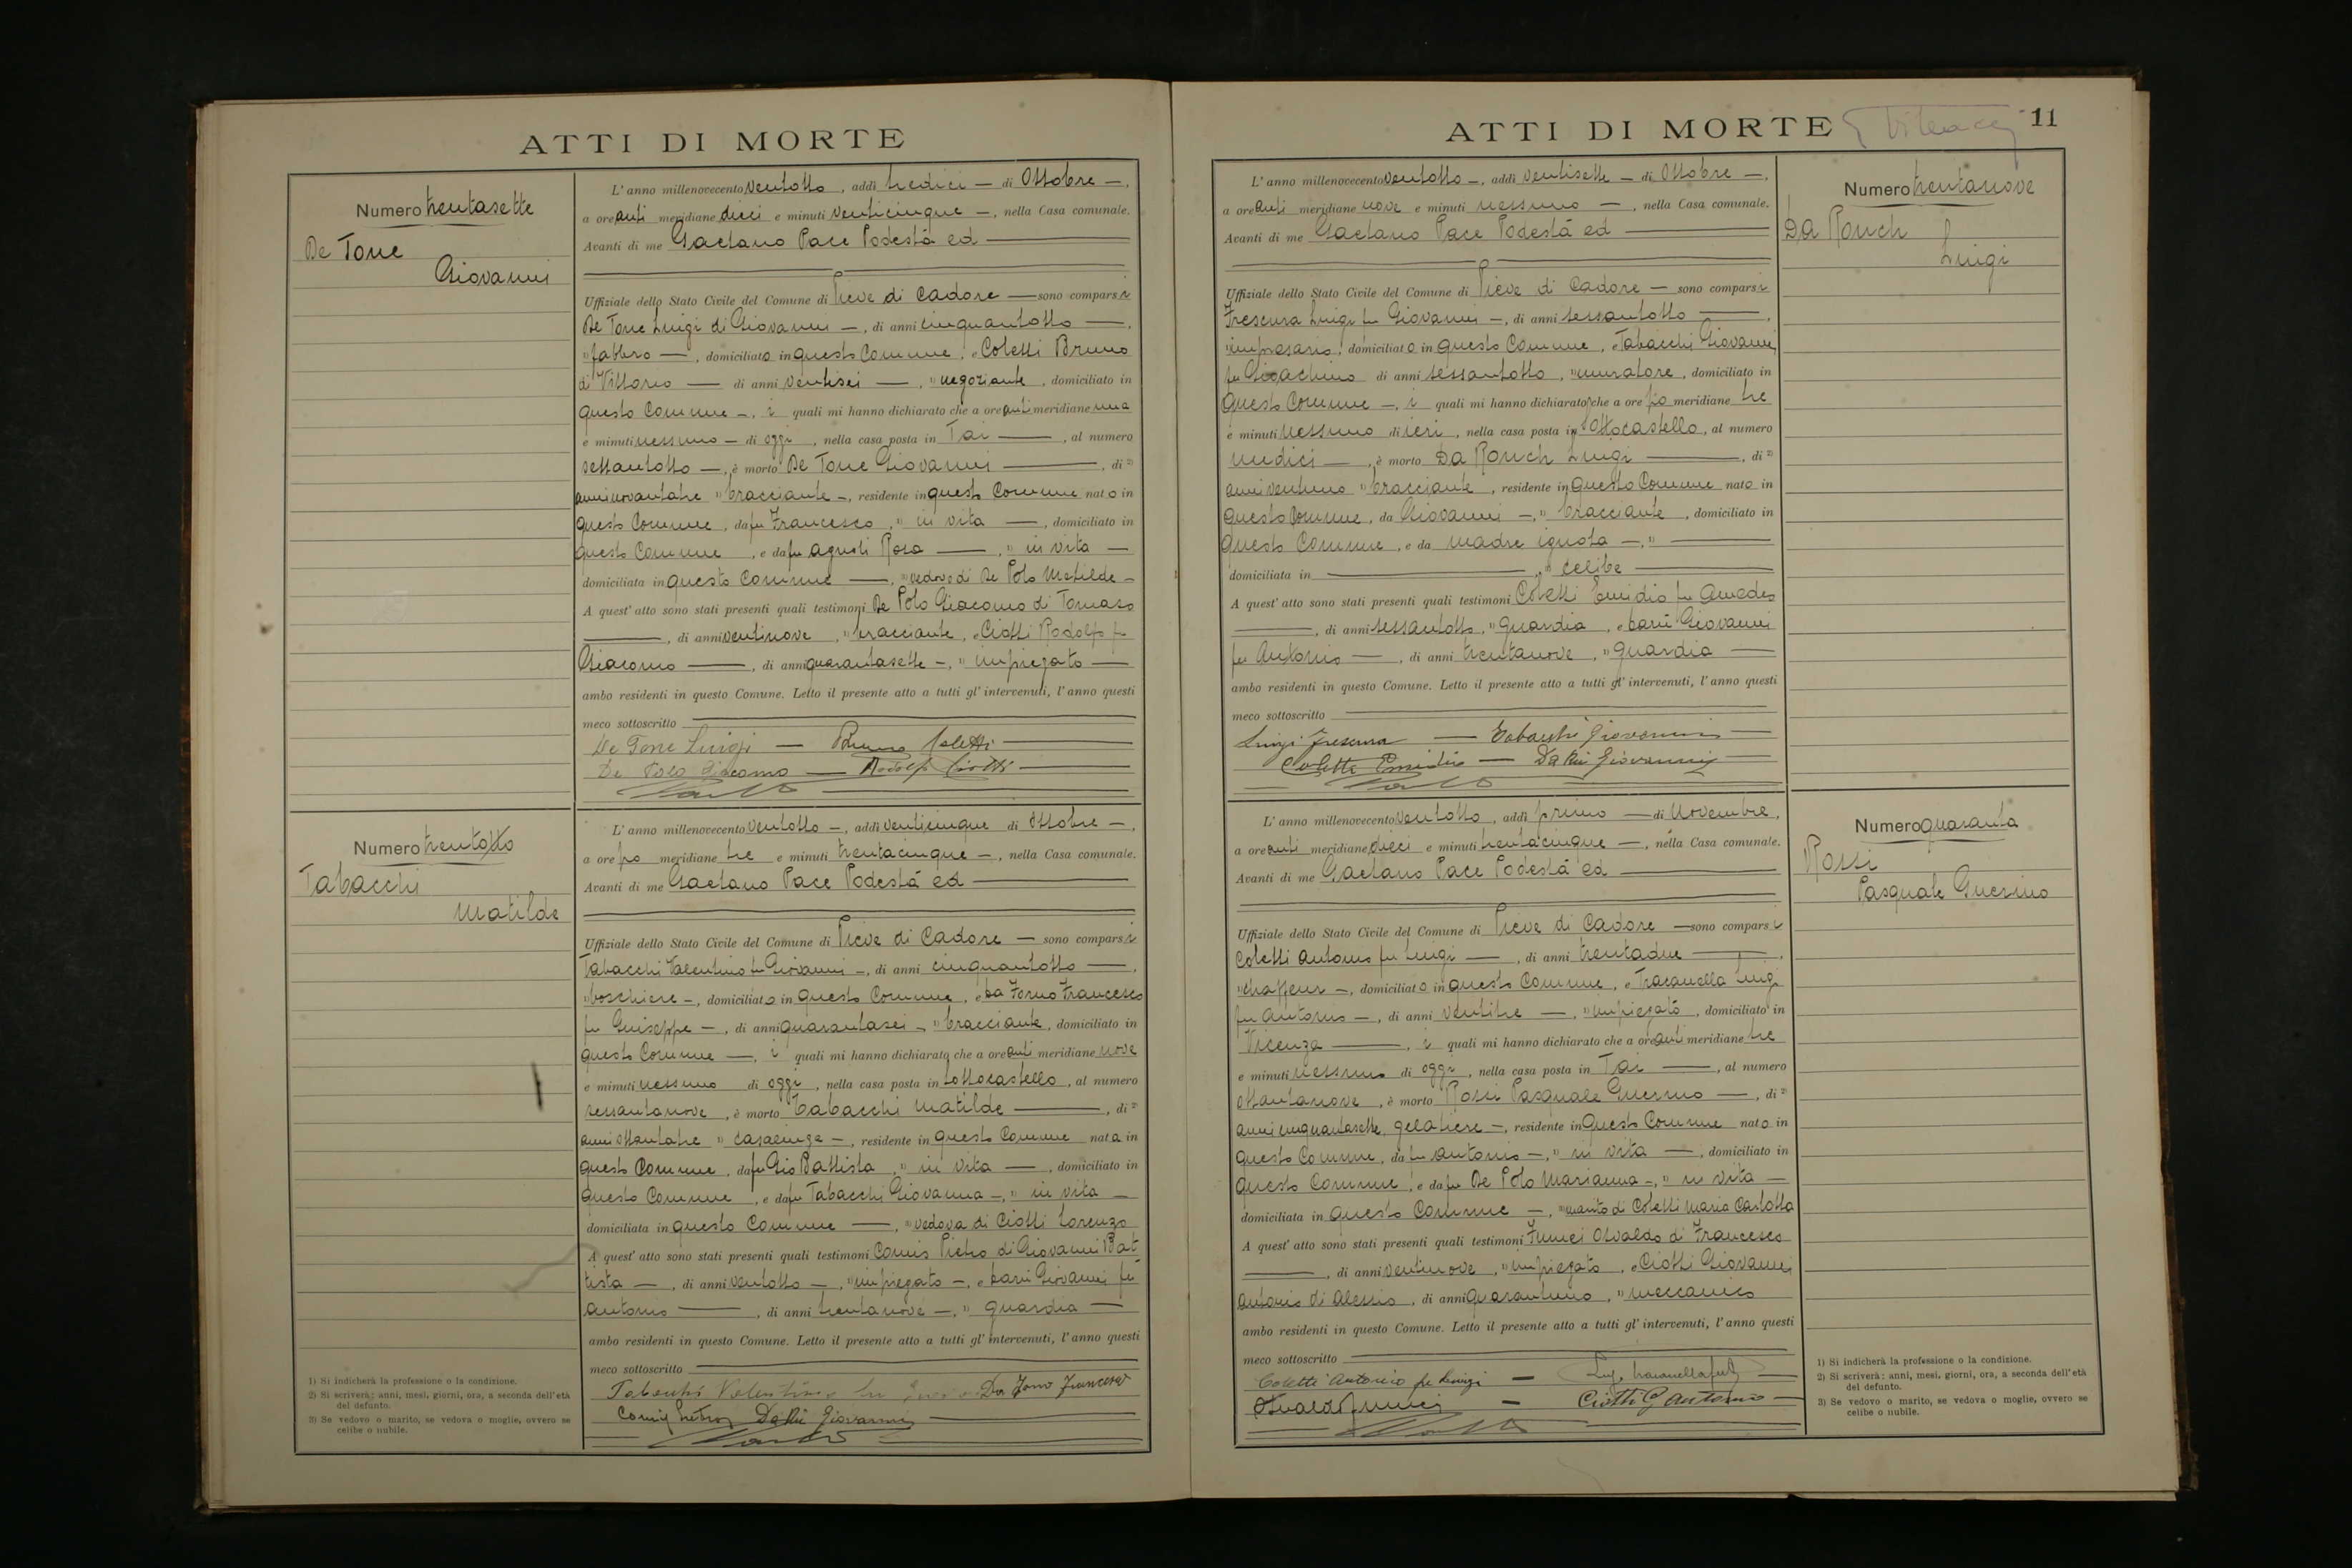 ATTI DI MORTE
Numero trentasette
De Tone
Giovanni
L'anno millenovecento ventotto, addì tredici — di Ottobre —,
a ore anti meridiane dieci e minuti venticinque —, nella Casa comunale.
Avanti di me Gaetano Pace Podestà ed
Uffiziale dello Stato Civile del Comune di Pieve di Cadore — sono comparsi
De Tone Luigi di Giovanni —, di anni cinquantotto —,
1) fabbro —, domiciliato in questo Comune, e Coletti Bruno
di Vittorio — di anni ventisei —, 1) negoziante, domiciliato in
questo Comune —, i quali mi hanno dichiarato che a ore anti meridiane una
e minuti nessuno — di oggi, nella casa posta in Tai —, al numero
settantotto —, è morto De Tone Giovanni —, di 2)
anni novantatre 1) bracciante —, residente in questo Comune nato in
questo Comune, da fu Francesco, 1) in vita —, domiciliato in
questo Comune, e da fu Agnoli Rosa —, 1) in vita —
domiciliata in questo Comune —, 3) vedovo di De Polo Matilde —
A quest'atto sono stati presenti quali testimoni De Polo Giacomo di Tomaso
—, di anni ventinove, 1) bracciante, e Ciotti Rodolfo fu
Giacomo —, di anni quarantasette —, 1) impiegato —
ambo residenti in questo Comune. Letto il presente atto a tutti gl'intervenuti, l'anno questi
meco sottoscritto
De Tone Luigi — Bruno Coletti
De Polo Giacomo — Rodolfo Ciotti
Numero trentotto
Tabacchi
Matilde
L'anno millenovecento ventotto —, addì venticinque di Ottobre —,
a ore po meridiane tre e minuti trentacinque —, nella Casa comunale.
Avanti di me Gaetano Pace Podestà ed
Uffiziale dello Stato Civile del Comune di Pieve di Cadore — sono comparsi
Tabacchi Valentino fu Giovanni —, di anni cinquantotto —,
1) boschiere —, domiciliato in questo Comune, e Da Forno Francesco
fu Guiseppe —, di anni quarantasei —, 1) bracciante, domiciliato in
questo Comune —, i quali mi hanno dichiarato che a ore anti meridiane nove
e minuti nessuno di oggi, nella casa posta in Sottocastello, al numero
sessantanove, è morto Tabacchi Matilde —, di 2)
anni ottantatre 1) casalinga —, residente in questo Comune nata in
questo Comune, da fu Gio Battista, 1) in vita —, domiciliato in
questo Comune, e da fu Tabacchi Giovanna —, 1) in vita —
domiciliata in questo Comune —, 3) vedova di Ciotti Lorenzo
A quest'atto sono stati presenti quali testimoni Comis Pietro di Giovanni Bat
tista —, di anni ventotto —, 1) impiegato —, e Darù Giovanni fu
Antonio —, di anni trentanove —, 1) guardia —
ambo residenti in questo Comune. Letto il presente atto a tutti gl'intervenuti, l'anno questi
meco sottoscritto
Tabacchi Valentino fu Da Forno Francesco
Comis Pietro Da Rù Giovanni
1) Si indicherà la professione o la condizione.
2) Si scriverà: anni, mesi, giorni, ora, a seconda dell'età
del defunto.
3) Se vedovo o marito, se vedova o moglie, ovvero se
celibe o nubile.
ATTI DI MORTE
11
L'anno millenovecento ventotto —, addì ventisette — di Ottobre —,
a ore anti meridiane nove e minuti nessuno —, nella Casa comunale.
Avanti di me Gaetano Pace Podestà ed
Uffiziale dello Stato Civile del Comune di Pieve di Cadore — sono comparsi
Frescura Luigi fu Giovanni —, di anni sessantotto —,
1) impresario, domiciliato in questo Comune, e Tabacchi Giovanni
fu Gioachino di anni sessantotto, 1) muratore, domiciliato in
questo Comune —, i quali mi hanno dichiarato che a ore po meridiane tre
e minuti nessuno di ieri, nella casa posta in Sottocastello, al numero
undici —, è morto Da Ronch Luigi —, di 2)
anni ventuno 1) bracciante, residente in questo Comune nato in
questo Comune, da Giovanni —, 1) bracciante, domiciliato in
questo Comune, e da madre ignota —, 1)
domiciliata in —, 3) celibe
A quest'atto sono stati presenti quali testimoni Coletti Emidio fu Amedeo
—, di anni sessantotto, 1) guardia, e Darù Giovanni
fu Antonio —, di anni trentanove, 1) guardia —
ambo residenti in questo Comune. Letto il presente atto a tutti gl'intervenuti, l'anno questi
meco sottoscritto
Luigi Frescura — Tabacchi Giovanni —
Coletti Emidio — Da Rù Giovanni
Numero trentanove
Da Ronch
Luigi
L'anno millenovecento ventotto, addì primo — di Novembre,
a ore anti meridiane dieci e minuti trentacinque —, nella Casa comunale.
Avanti di me Gaetano Pace Podestà ed
Uffiziale dello Stato Civile del Comune di Pieve di Cadore — sono comparsi
Coletti Antonio fu Luigi —, di anni trentadue —,
1) chaffeur —, domiciliato in questo Comune, e Tracanella Luigi
fu Antonio —, di anni ventitre —, 1) impiegato, domiciliato in
Vicenza —, i quali mi hanno dichiarato che a ore anti meridiane tre
e minuti nessuno di oggi, nella casa posta in Tai —, al numero
ottantanove, è morto Rossi Pasquale Guerino —, di 2)
anni cinquantasette, gelatiere —, residente in questo Comune nato in
questo Comune, da fu Antonio —, 1) in vita —, domiciliato in
questo Comune, e da fu De Polo Marianna —, 1) in vita —
domiciliata in questo Comune —, 3) marito di Coletti Maria Carlotta
A quest'atto sono stati presenti quali testimoni Osvaldo di Francesco
—, di anni ventinove, 1) impiegato, e Ciotti Giovanni
Antonio di Alessio, di anni quarantuno, 1) meccanico
ambo residenti in questo Comune. Letto il presente atto a tutti gl'intervenuti, l'anno questi
meco sottoscritto
Coletti Antonio fu Luigi —
Osvaldo — Ciotti G Antonio
Numero quaranta
Rossi
Pasquale Guerino
1) Si indicherà la professione o la condizione.
2) Si scriverà: anni, mesi, giorni, ora, a seconda dell'età
del defunto.
3) Se vedovo o marito, se vedova o moglie, ovvero se
celibe o nubile.